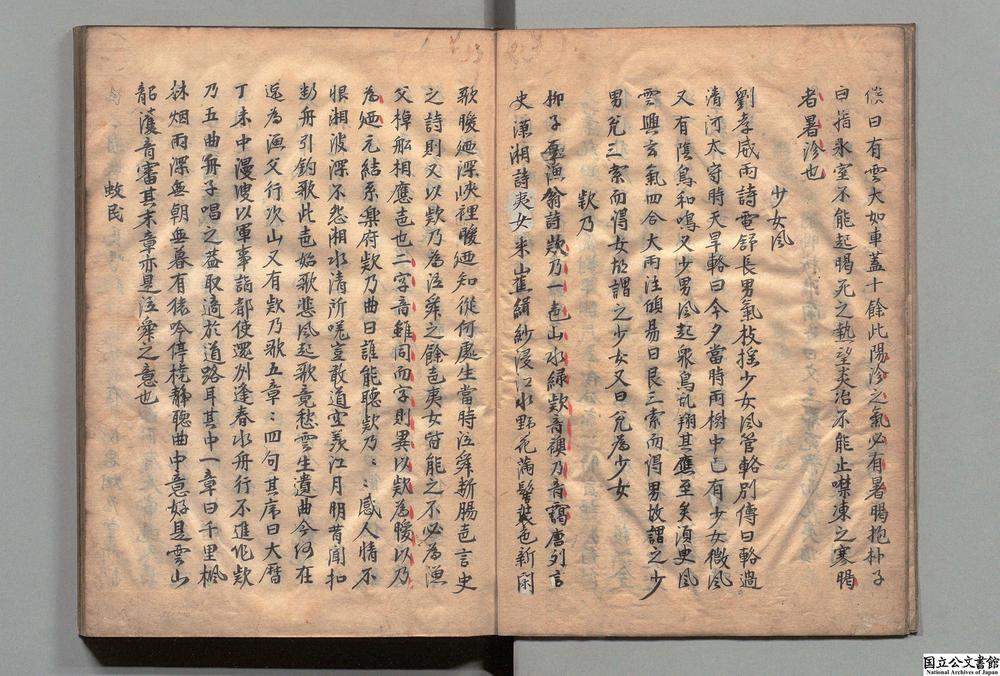 僕曰有雲大如車蓋十餘此陽沴之氣必有暑暍抱朴子
曰指氷室不能起暍死之熱望炎冶不能止噤凍之寒暍
者暑沴也
少女風
劉孝威雨詩電舒長男氣枝搖少女風管輅別傳曰輅過
清河太守時天旱輅曰今夕當雨樹中已有少女微風
又有陰鳥和鳴又少男風起衆鳥乱翔其應至矣須臾風
雲興玄氣四合大雨注傾易曰艮三索而得男故謂之少
男兌三索而得女故謂之少女又曰兌為少女
欵乃
柳子厚漁翁詩欵乃一声山水緑欵音襖乃音靄唐列言
史瀟湘詩夷女采山蕉緝紗浸江水野花滿髻粧色新閑
歌曖廼深峡裡曖廼知從何處生當時泣舜断腸声言史
之詩則又以欵乃為泣舜之餘声夷女皆能之不必為漁
父棹船相應声也二字音雖同而字則異以欵為曖以乃
為廼元結系樂府欵乃曲曰誰能聽欵乃〻〻感人情不
恨湘波深不怨湘水清所嗟豈敢道空羨江月明昔聞扣
断舟引釣歌此声始歌悲風起歌竟愁雲生遺曲今何在
逸為漁父行次山又有欵乃歌五章〻四句其序曰大暦
丁未中漫叟以軍事詣都使還州逢春水舟行不進作欵
乃五曲舟子唱之葢取適於道路耳其中一章曰千里楓
林烟雨深無朝無暮有猿吟停橈靜聽曲中意好是雲山
韶濩音審其末章亦是泣舜之意也
蚊民
国立公文書館
National Archives of Japan